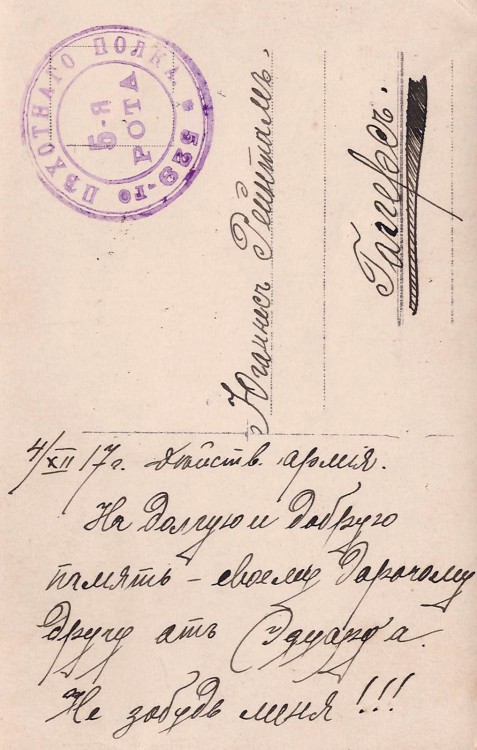 529-го ПѢХОТНАГО ПОЛКА
5-я
РОТА
Юганнесъ Рейнтамъ.
4/XII 17 г. Дѣйств. армія.
На долгую и добрую
память – своему дорогому
другу отъ Эдуард'а.
Не забудь меня!!!